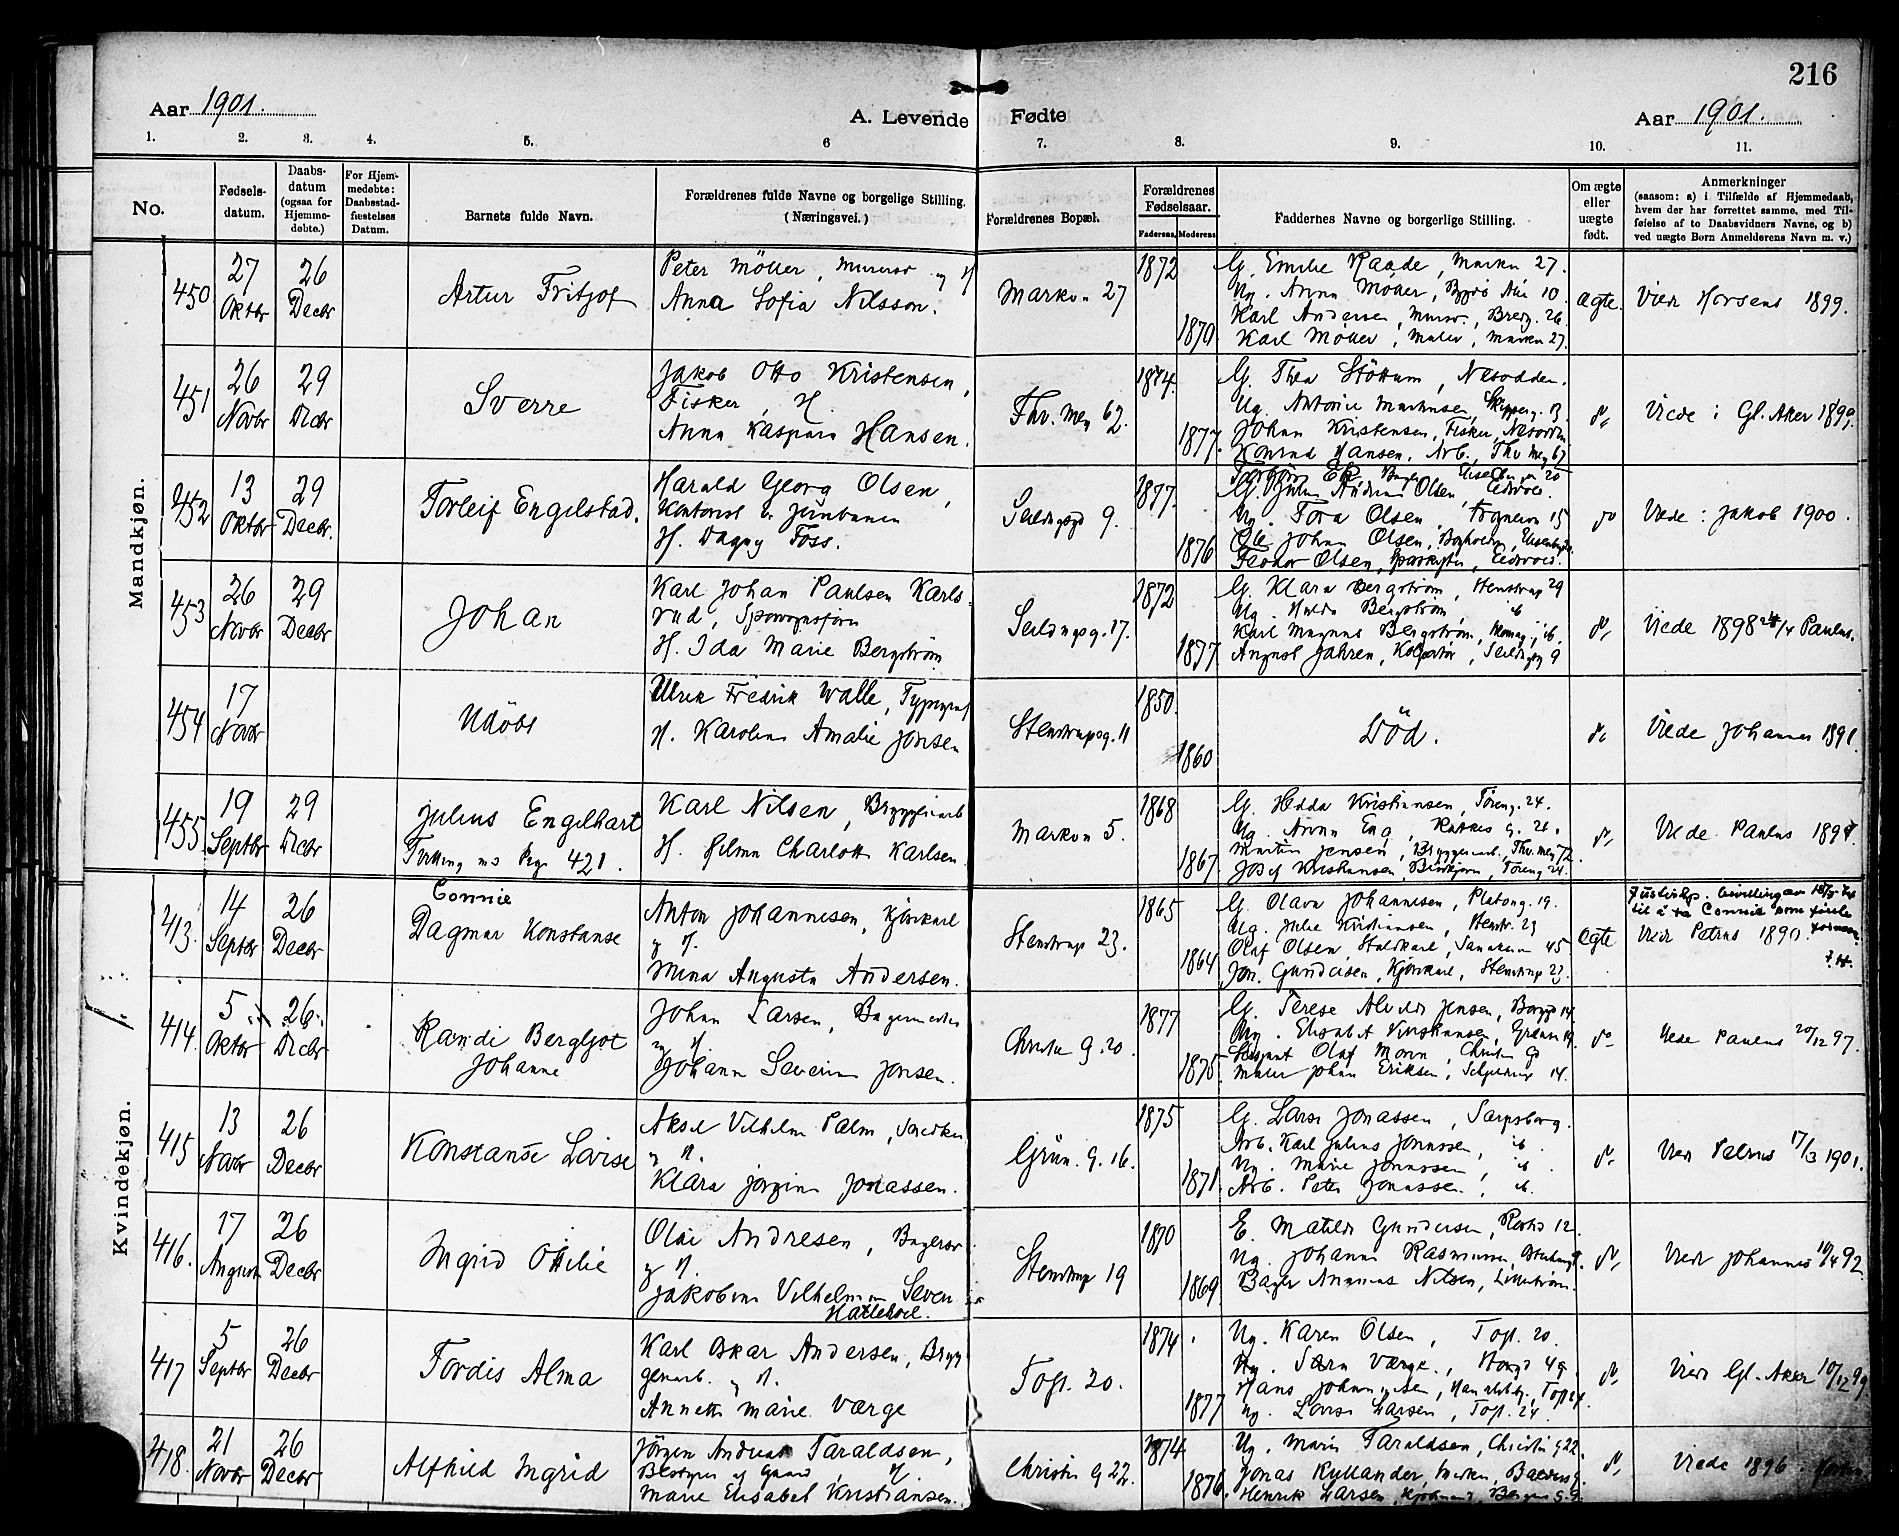 216
Aar 1901.
A. Levende Fødte
Aar 1901.
1. 2. 3. 4. 5. 6 7. 8. 9. 10. 11.
No.
Fødsels-
datum.
Daabs-
datum
(ogsaa for
Hjemme-
døbte.)
For Hjem-
medøbte:
Daabsstad-
fæstelses
Datum.
Barnets fulde Navn.
Forældrenes fulde Navne og borgelige Stilling.
(Næringsvei.)
Forældrenes Bopæl.
Forældrenes
Fødselsaar.
Faderens. Moderens.
Faddernes Navne og borgerlige Stilling.
Om ægte
eller
uægte
født.
Anmerkninger
(saasom: a) i Tilfælde af Hjemmedaab,
hvem der har forrettet samme, med Til-
føielse af to Daabsvidners Navne, og b)
ved uægte Børn Anmelderens Navn m. v.)
Mandkjøn.
450
27 Oktbr
26 Decbr
Artur Fritjof
Peter Möller, Murersv og H
Anna Sofia Nilsson.
Markvn 27
1872
1870
G. Emilie Raade, Markv 27.
Ug. Anna Möller, Bygdö Alle 10.
Karl Andersen, Murersv., Bredg. 26
Karl Möller, Maler, Markv 27.
ægte.
Viede Horsens 1899.
451
26 Novbr
29 Decbr
Sverre
Jakob Otto Kristensen,
Fisker, H.
Anna Kaspara Hansen.
Thv. Mey 62.
1874.
1877.
G. Thea Stöttum, Nesodden.
Ug. Antonie Mathisen, Skipperg. 13
Johan Kristensen, Fisker, Nesodden
Konrad Hansen, Arb., Thv Mey 67
do
Viede i Gl. Aker 1899.
452
13 Oktbr
29 Decbr.
Torleif Engelstad.
Harald Georg Olsen,
Kontorist v. Jernbanen
H. Dagny Foss.
Seildugsgd 9.
1877.
1876
G. Andrea Olsen, Eidsvold.
Ug. Tora Olsen, Sogneven 15
Ole Johan Olsen, Bogholder,
Teodor Olsen, Eidsvold.
do
Viede: Jakob 1900.
453
26 Novbr
29 Decbr
Johan
Karl Johan Paulsen Karls-
rud, Sporvognsförer
H. Ida Marie Bergström
Seildugsg. 17.
1872
1877
G. Klara Bergström, Stenstrup 29
Ug. Hulda Bergström ib
Karl Magnus Bergström, ib.
August Jahren, Kolportör, Seildugsg 9
do
Viede 1898 24/4 Paulus.
454
17 Novbr
Udöbt
Ulrik Fredrik Walle, Typograf
H. Karoline Amalie Jonsen
Stenstrupsg. 11
1850.
1860
Död.
do
Viede Johannes 1891.
455.
19 Septbr
29 Decbr
Julius Engelhart
Tvilling m/s Pige 421.
Karl Nilsen, Bryggeriarb
H. Hilma Charlotte Karlsen.
Markvn 5.
1868
1867
G. Hedda Kristiansen, Töieng. 24.
Ug. Anna Eng, Rathkes g. 26.
Martin Jensen, Bryggeriarb., Thv. Mey 72.
Josef Kristiansen, Töieng 24.
do
Viede Paulus 1897.
Kvindekjøn.
413.
14 Septbr
26 Decbr
Connie
Dagmar Konstanse
Anton Johannesen, Kjörekarl
og H.
Mina Augusta Andersen.
Stenstrup 23.
1865
1864
G. Olava Johannesen, Platoug. 19.
Ug. Julie Kristiansen, Stenstr. 23
Olaf Olsen, Staldkarl, 45
Joh. Gundersen, Kjörekarl, Stenstrup 23.
ægte
til å ta Connie som første
fornavn.
Viede Petrus 1890.
414.
5 Oktbr
26 Decbr
Randi Bergljot
Johanne
Johan Larsen, Bagermester
og H.
Johanne Severine Jonsen.
Christies g. 20.
1877
1875.
G. Terese Alvilde Jensen, Borgg 14.
Ug. Elisabet Kristiansen, Grönne 19.
Sersjant Olaf Moren, Christies gd
Maler Johan Eriksen, 14.
do
Viede Paulus 20/12 97.
415
13 Novbr
26 Decbr
Konstanse Lovise
Aksel Vilhelm Palm, Snedker
og H.
Klara Jörgine Jonassen.
Grün. g. 16.
1875
1871.
G. Lovise Jonassen, Sarpsborg.
Arb. Karl Julius Jonassen, ib.
Ug. Marie Jonassen, ib.
Arb. Peter Jonassen, ib.
do
Viede Petrus 17/3 1901.
416.
17 August
26 Decbr
Ingrid Ottilie
Olai Andresen, Bagersv.
og H.
Jakobine Vilhelmine Severine
Hattehoel.
Stenstrup 19
1870
1869.
E. Matilde Gundersen, 12.
Ug. Johanne Rasmussen,
Bager Nilsen, Lilleström.
do
Viede Johannes 18/4 92.
417
5 Septbr
26 Decbr
Tordis Alma
Karl Oskar Andersen, Brygg
geriarb. og H.
Annette Marie Værge
Toft. 20.
1874.
1877
Ug. Karen Olsen, Toft. 20.
Ug. Sara Værge., 49.
Hans Johannesen, Toft 24.
Ug. Lovise Larsen, Toft. 24.
do
Viede Gl. Aker 10/12 99
418.
21 Novbr
26 Decbr
Alfhild Ingrid
Jörgen Andreas Taraldsen,
Bestyrer af Gaard, H.
Marie Elisabet Kristiansen.
Christies g 22.
1874
1876.
Ug. Marie Taraldsen, Christies g 22.
Jonas Kyllander, Baldersg.
Henrik Larsen, Bergens g. 9.
do
Viede 1896